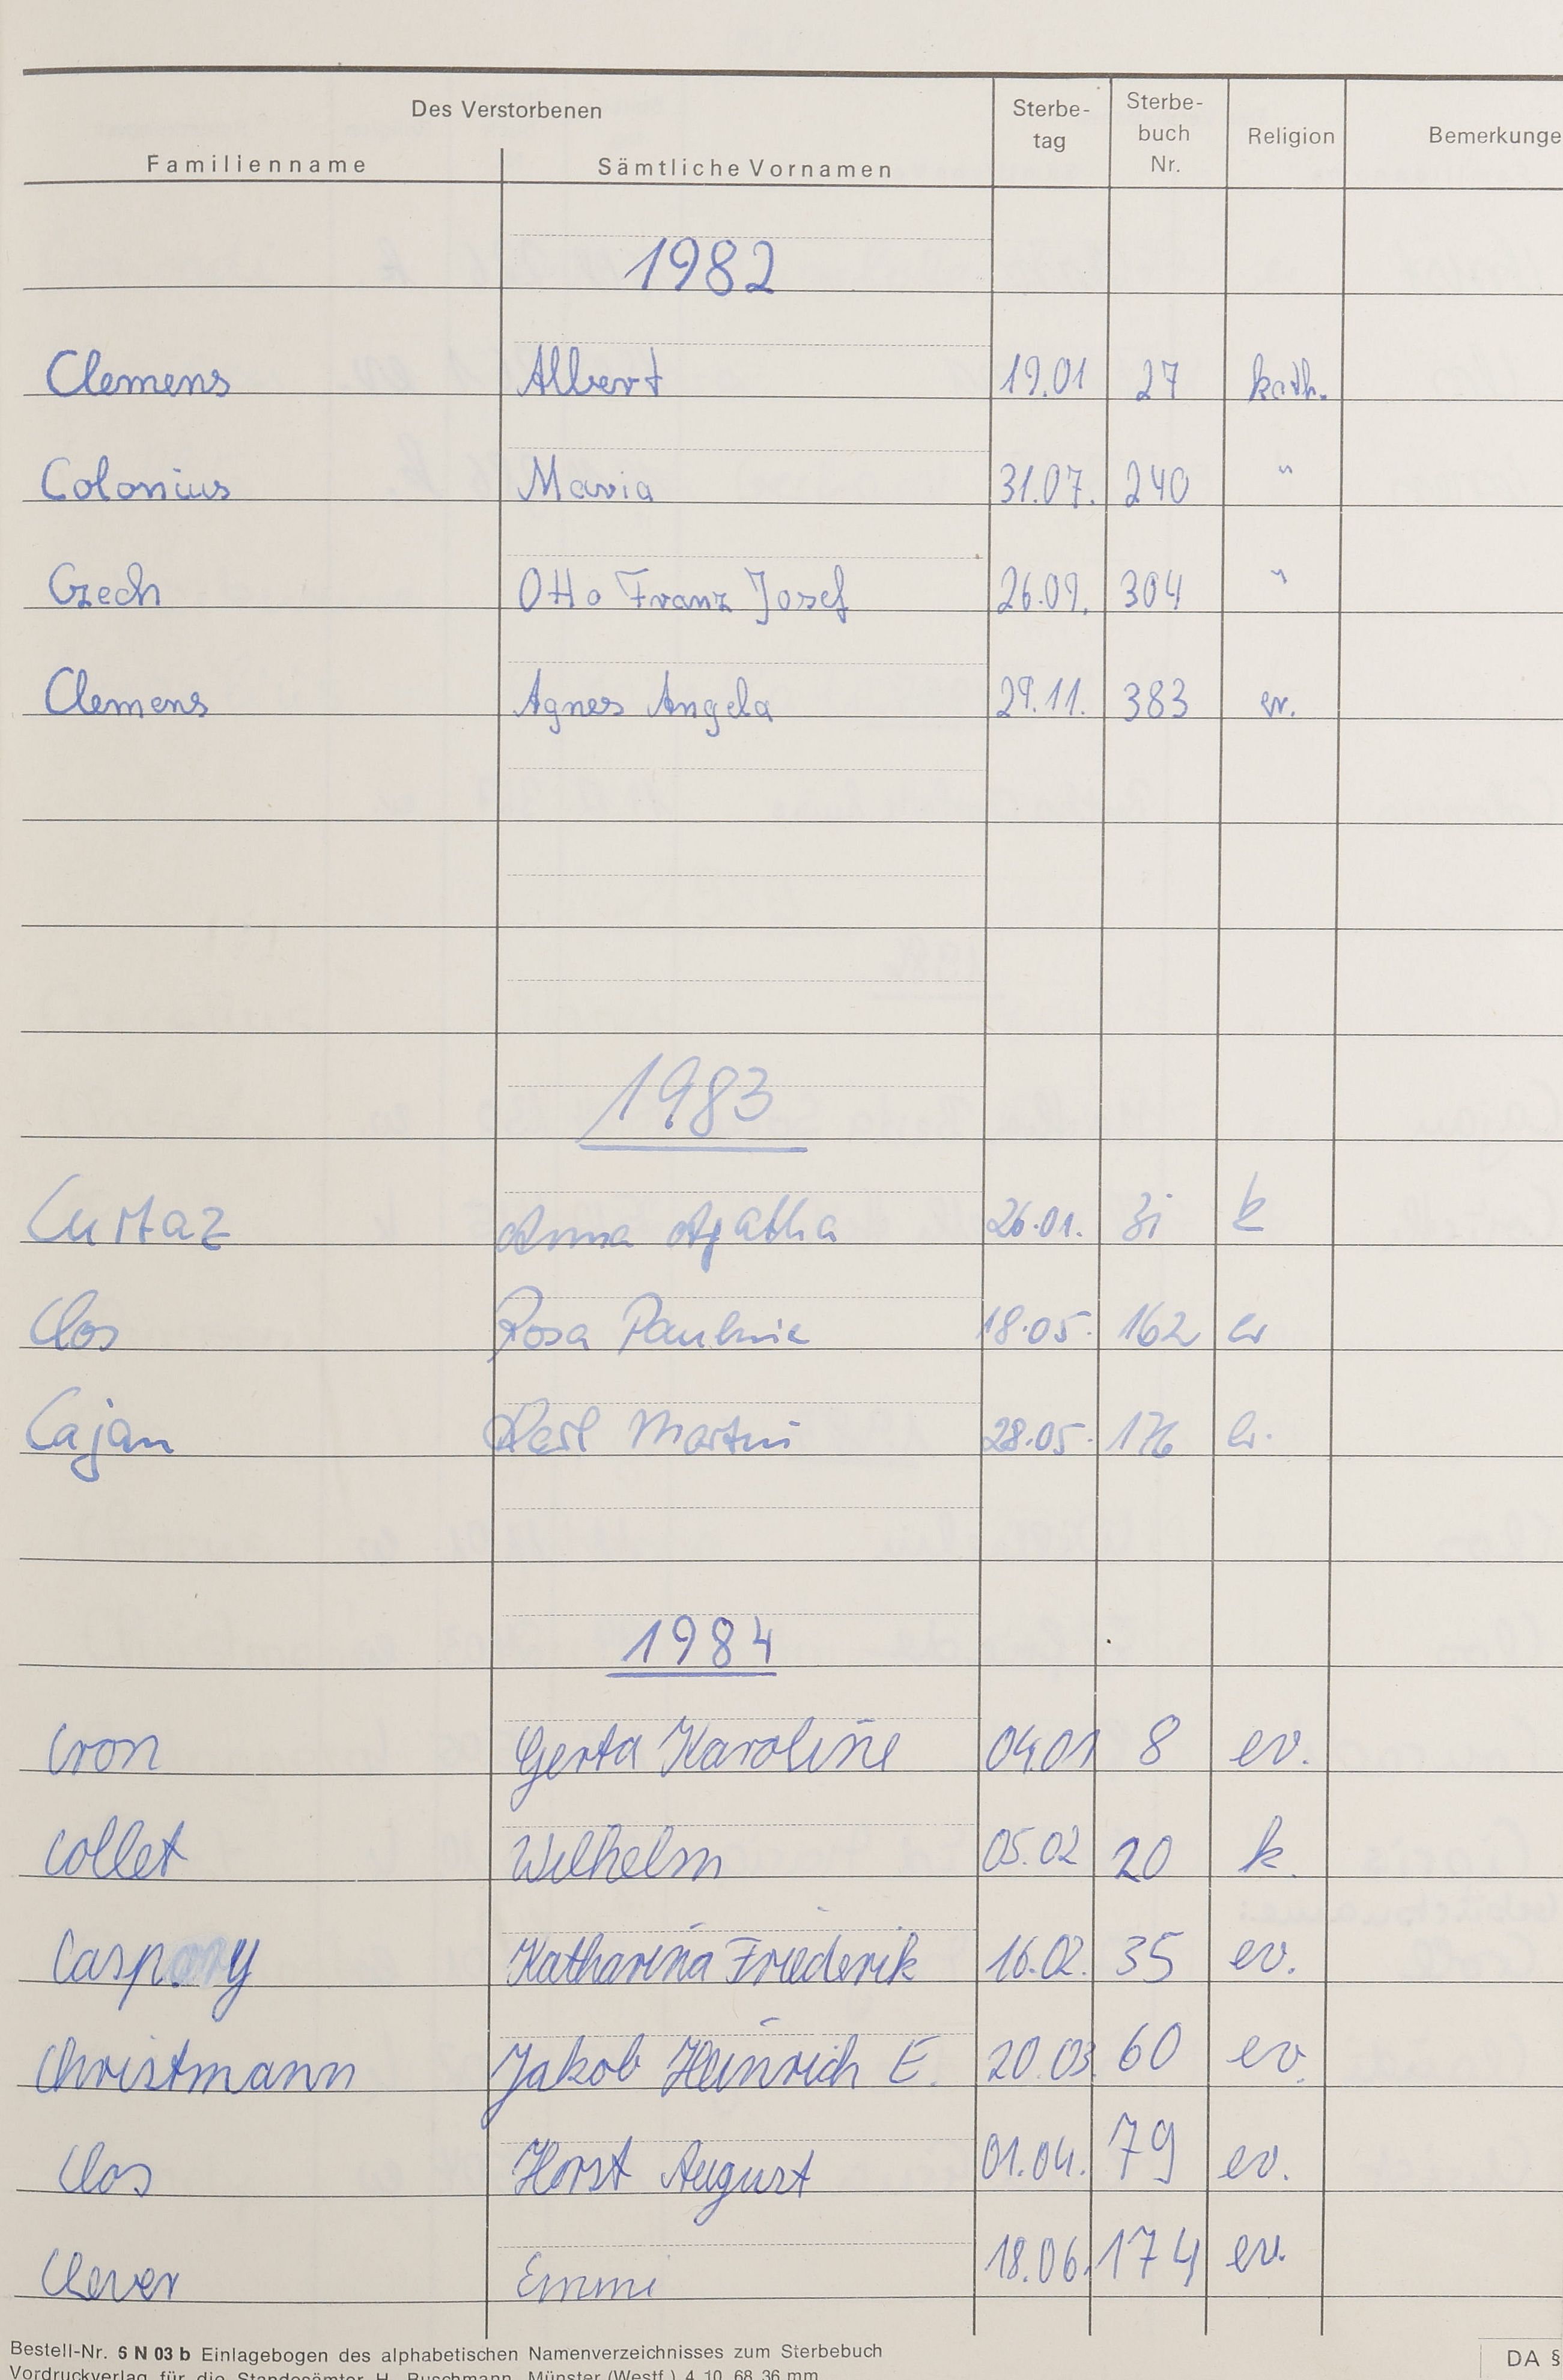 Des Verstorbenen
Familienname Sämtliche Vornamen Sterbe-tag Sterbe-buch Nr. Religion Bemerkunge
1982
Clemens Albert 19.01 27 kath.
Colonius Maria 31.07. 240 "
Czech Otto Franz Josef 26.09. 304 "
Clemens Agnes Angela 29.11. 383 ev.
1983
Curtaz Anna Agatha 26.01. 31 k
Clos Rosa Pauline 18.05. 162 ev
Cajan Karl Martin 28.05. 176 ev.
1984
Cron Gerta Karoline 04.01 8 ev.
Collet Wilhelm 05.02 20 k.
Caspary Katharina Friederik 16.02. 35 ev.
Christmann Jakob Heinrich E. 20.03. 60 ev.
Clos Horst August 01.04. 79 ev.
Clever Emmi 18.06. 174 ev.
Bestell-Nr. 5 N 03 b Einlagebogen des alphabetischen Namenverzeichnisses zum Sterbebuch DA §
Vordruckverlag für die Standesämter H. Buschmann, Münster (Westf.) 4.10.68.36 mm